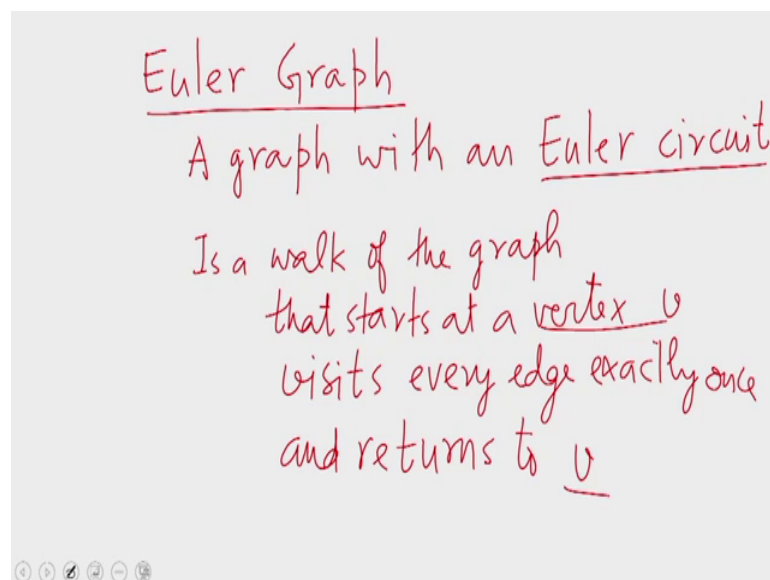 Euler Graph
A graph with an Euler circuit
Is a walk of the graph
that starts at a vertex v
visits every edge exactly once
and returns to v